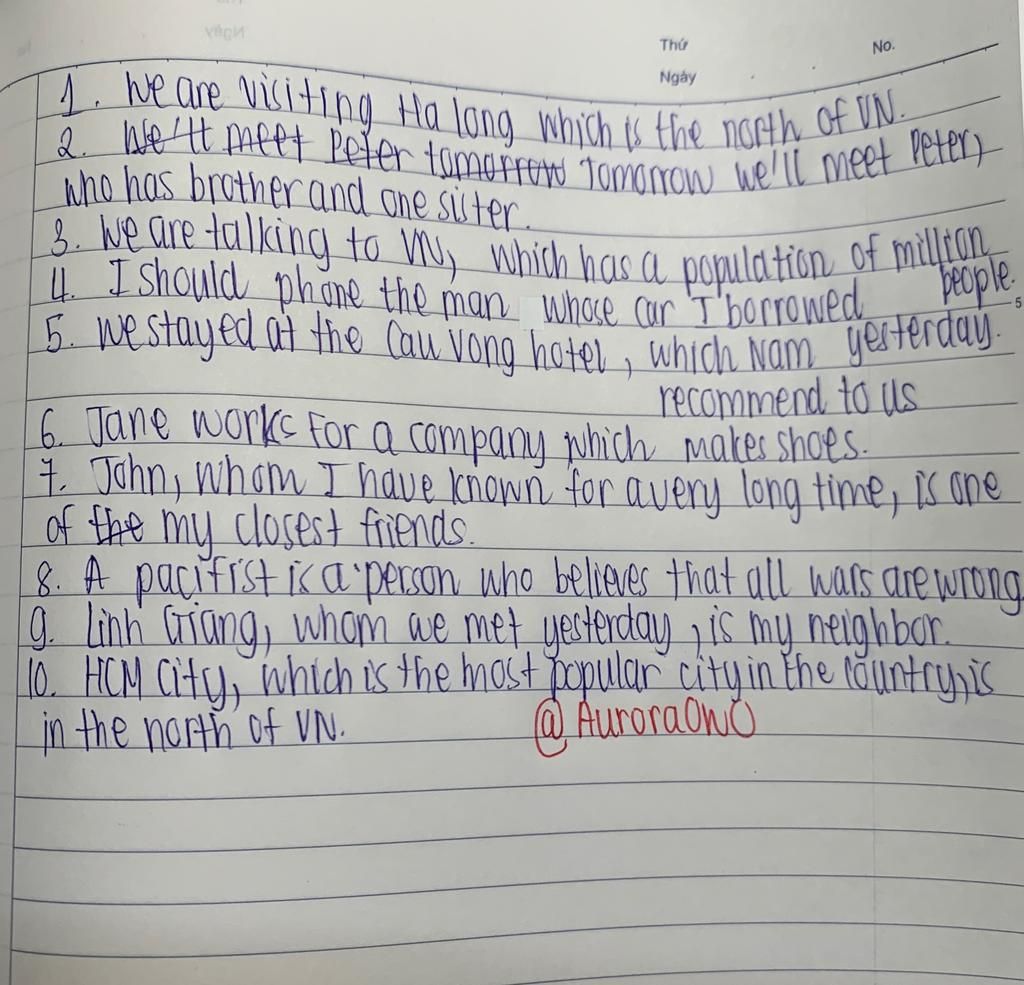 Thứ
No.
Ngày
1. We are visiting Ha long which is the north of VN.
2. We'll meet Peter tomorrow Tomorrow we'll meet Peter,
who has brother and one sister.
3. We are talking to VN, which has a population of million
people.
4. I should phone the man whose car I borrowed
5
5. We stayed at the Cau Vong hotel, which Nam yesterday.
recommend to us
6. Jane works for a company which makes shoes.
7. John, whom I have known for a very long time, is one
of the my closest friends.
8. A pacifist is a person who believes that all wars are wrong.
9. Linh Giang, whom we met yesterday, is my neighbor.
10. HCM City, which is the most popular city in the country, is
in the north of VN.
@AuroraOwO